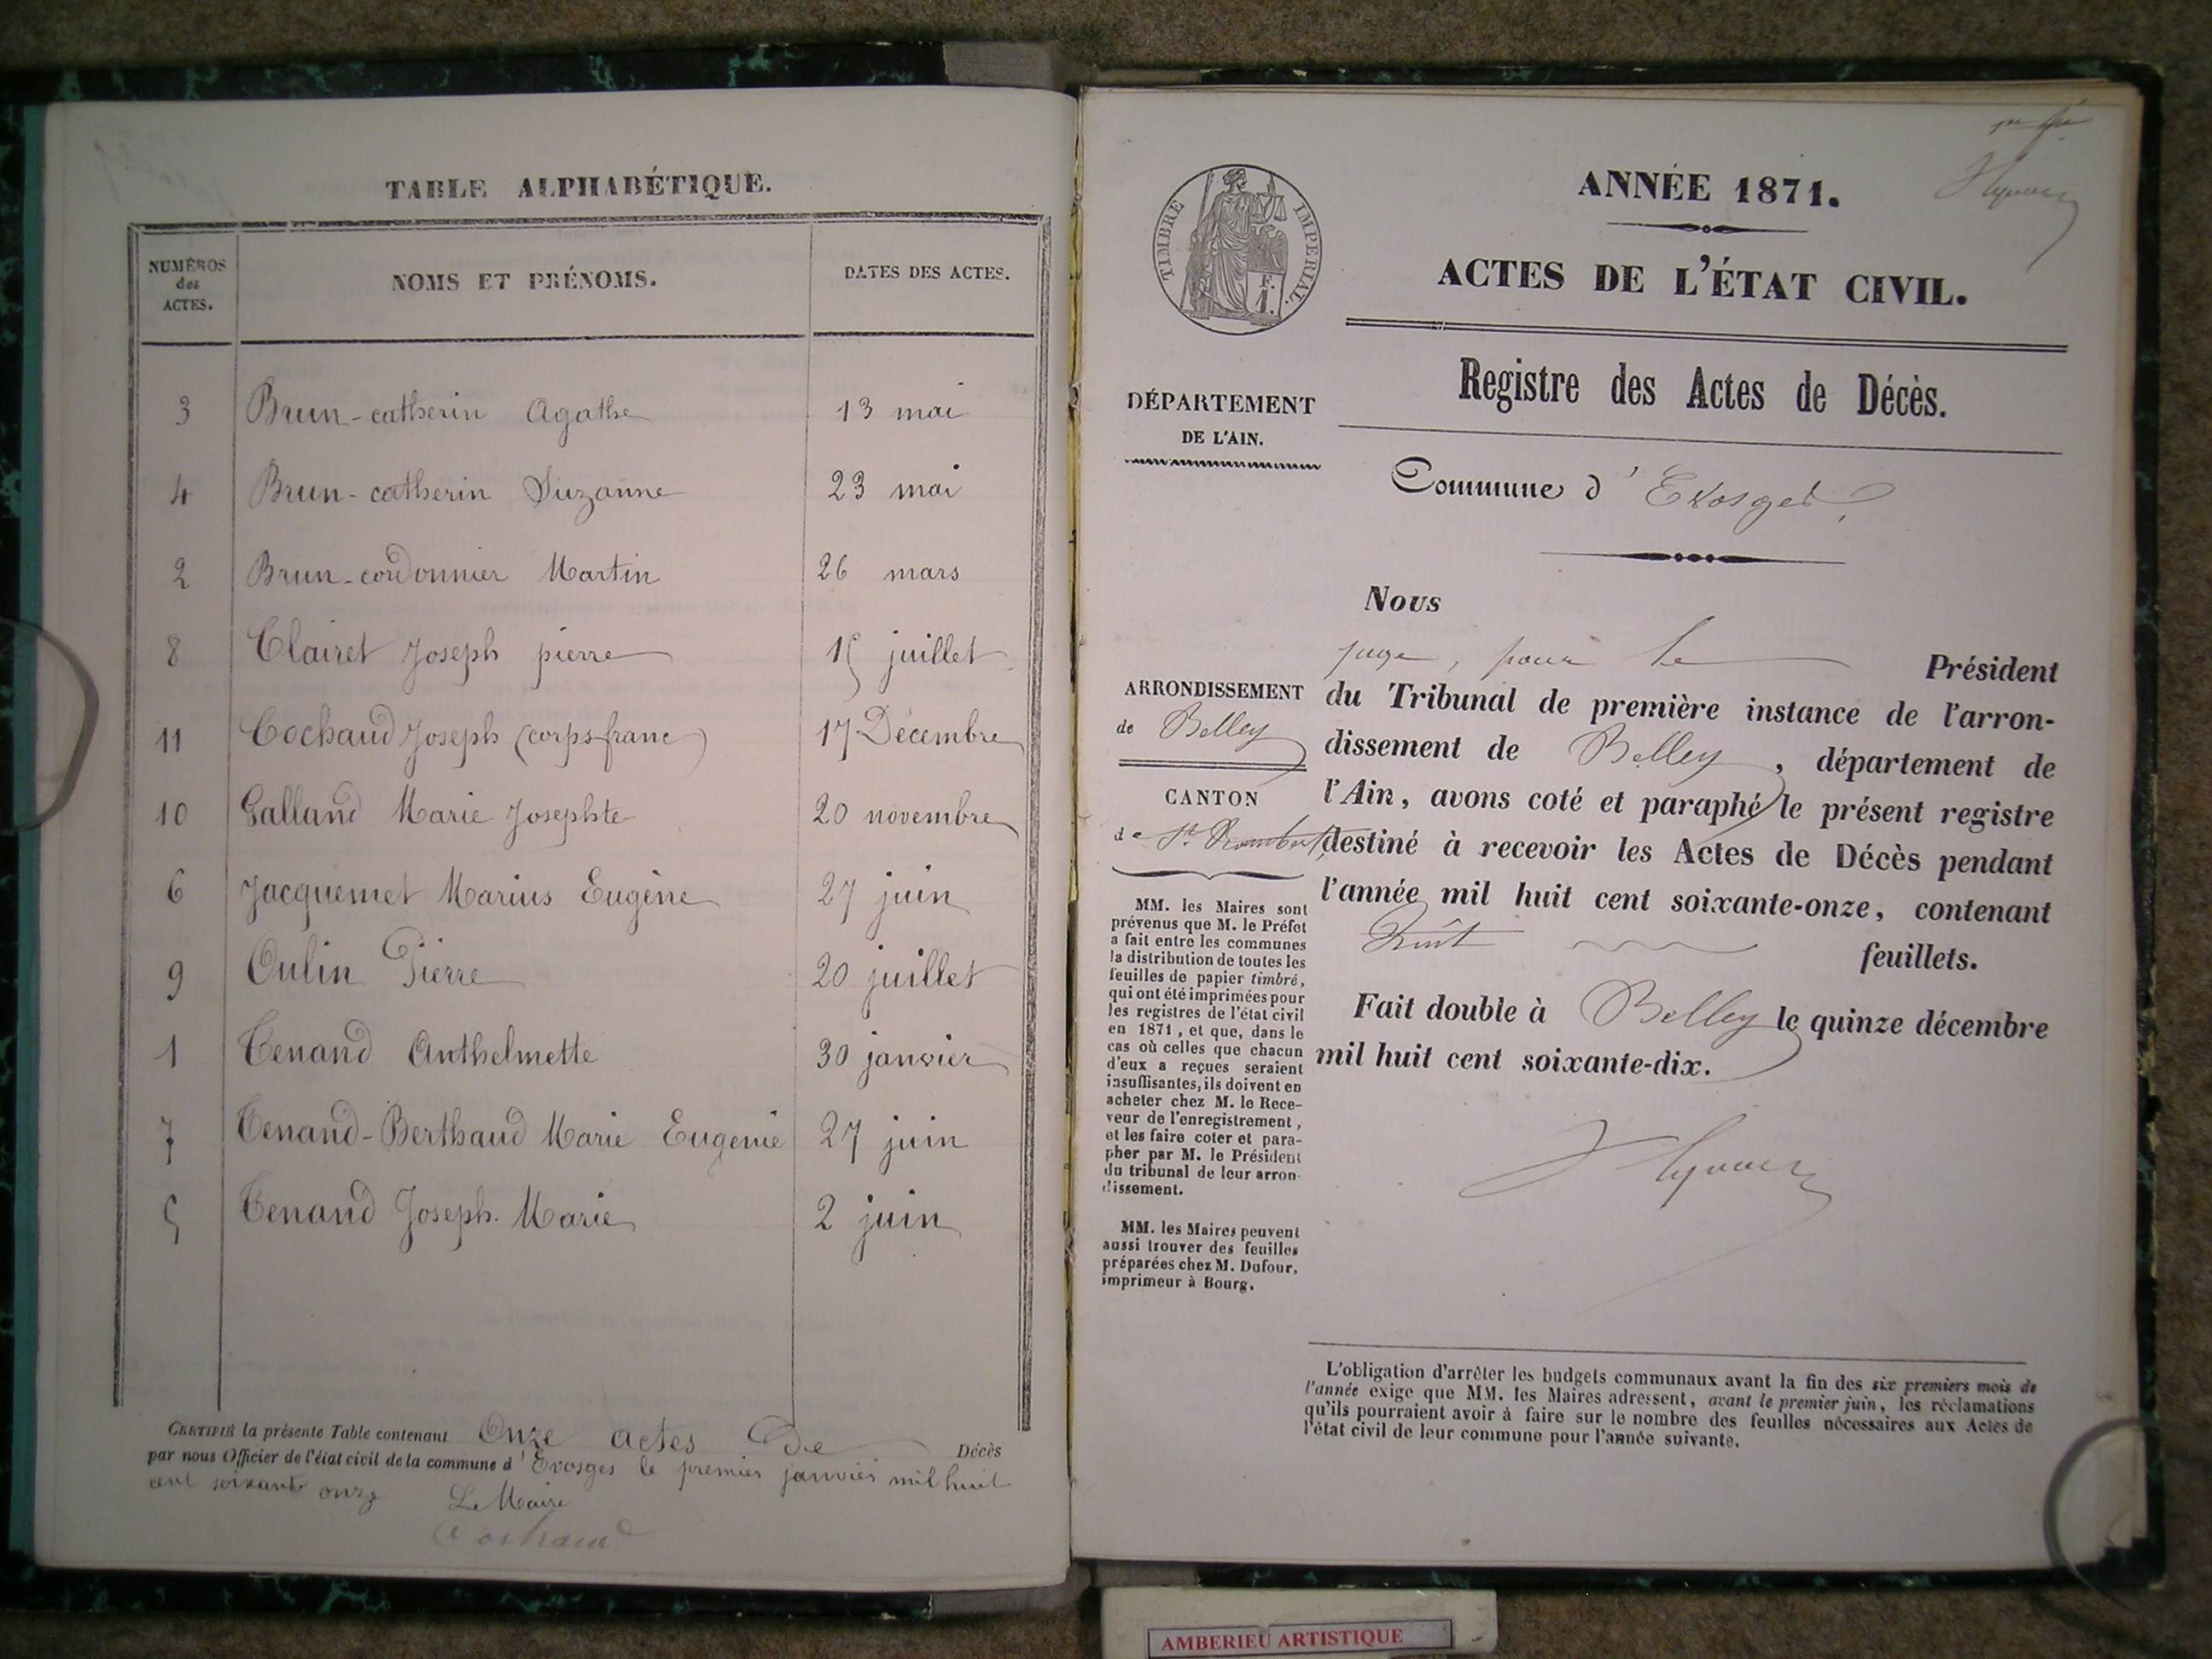 TABLE ALPHABÉTIQUE.
NUMÉROS des ACTES. NOMS ET PRÉNOMS. DATES DES ACTES.
3 Brun-catherin Agathe 13 mai
4 Brun-catherin Suzanne 23 mai
2 Brun-cordonnier Martin 26 mars
8 Clairet Joseph pierre 15 juillet
11 Cochaud Joseph (corps franc) 17 Décembre
10 Galland Marie Josephte 20 novembre
6 Jacquemet Marius Eugène 27 juin
9 Oulin Pierre 20 juillet
1 Tenand Anthelmette 30 janvier
7 Tenand-Berthaud Marie Eugenie 27 juin
5 Tenand Joseph. Marie 2 juin
CERTIFIÉ la présente Table contenant Onze actes De Décès
par nous Officier de l'état civil de la commune d'Evosges le premier janvier mil huit
cent soixante onze Le Maire
Cochaud
TIMBRE IMPÉRIAL.
ANNÉE 1871.
ACTES DE L'ÉTAT CIVIL.
Registre des Actes de Décès.
DÉPARTEMENT
DE L'AIN.
Commune d'Evosges
Nous
juge, pour le Président
du Tribunal de première instance de l'arron-
dissement de Belley, département de
l'Ain, avons coté et paraphé le présent registre
destiné à recevoir les Actes de Décès pendant
l'année mil huit cent soixante-onze, contenant
huit feuillets.
Fait double à Belley le quinze décembre
mil huit cent soixante-dix.
ARRONDISSEMENT
de Belley
CANTON
de St. Rambert
MM. les Maires sont
prévenus que M. le Préfet
a fait entre les communes
la distribution de toutes les
feuilles de papier timbré,
qui ont été imprimées pour
les registres de l'état civil
en 1871, et que, dans le
cas où celles que chacun
d'eux a reçues seraient
insuffisantes, ils doivent en
acheter chez M. le Rece-
veur de l'enregistrement,
et les faire coter et para-
pher par M. le Président
du tribunal de leur arron-
dissement.
MM. les Maires peuvent
aussi trouver des feuilles
préparées chez M. Dufour,
imprimeur à Bourg.
L'obligation d'arrêter les budgets communaux avant la fin des six premiers mois de
l'année exige que MM. les Maires adressent, avant le premier juin, les réclamations
qu'ils pourraient avoir à faire sur le nombre des feuilles nécessaires aux Actes de
l'état civil de leur commune pour l'année suivante.
AMBERIEU ARTISTIQUE